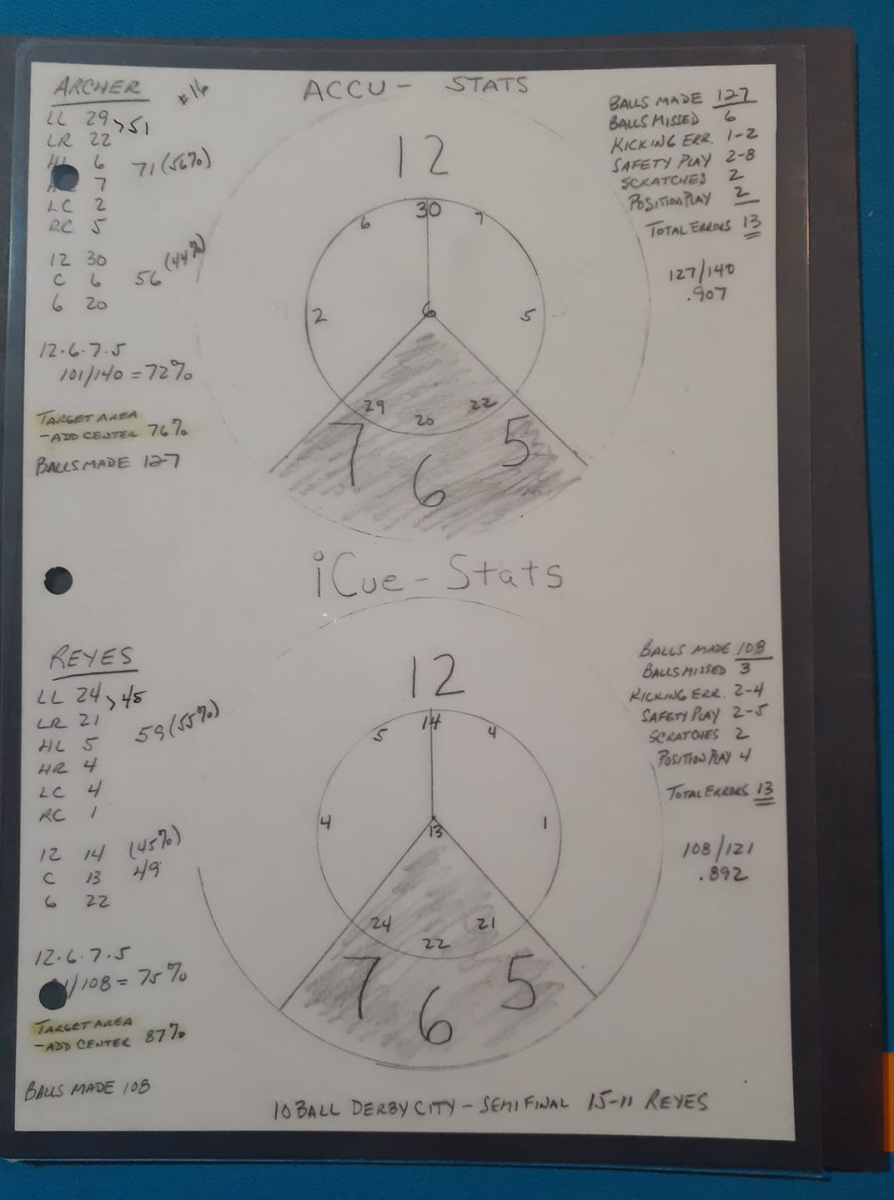 ARCHER
#16
LL 29 > 51
LR 22
HL 6
71 (56%)
7
LC 2
RC 5
12 30
C 6
56 (44%)
6 20
12·6·7·5
101/140 = 72%
TARGET AREA
-ADD CENTER 76%
BALLS MADE 127
ACCU - STATS
12
6 30 7
2 6 5
29 20 22
7 6 5
BALLS MADE 127
BALLS MISSED 6
KICKING ERR. 1-2
SAFETY PLAY 2-8
SCRATCHES 2
POSITION PLAY 2
TOTAL ERRORS 13
127/140
.907
iCue-Stats
REYES
LL 24 > 45
LR 21
HL 5
59 (55%)
HR 4
LC 4
RC 1
12 14 (45%)
C 13 49
6 22
12·6·7·5
1/108 = 75%
TARGET AREA
-ADD CENTER 87%
BALLS MADE 108
12
5 14 4
4 13 1
24 22 21
7 6 5
BALLS MADE 108
BALLS MISSED 3
KICKING ERR. 2-4
SAFETY PLAY 2-5
SCRATCHES 2
POSITION PLAY 4
TOTAL ERRORS 13
108/121
.892
10 BALL DERBY CITY - SEMIFINAL 15-11 REYES